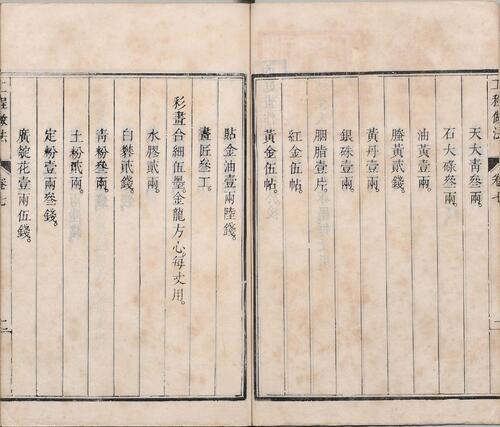 工程做法
卷七
天大青叁兩。
石大碌叁兩。
油黃壹兩。
籐黃貳錢。
黃丹壹兩。
銀硃壹兩。
胭脂壹片。
紅金伍帖。
黃金伍帖。
貼金油壹兩陸錢。
畫匠叁工。
彩畫合細伍墨。金龍方心。每丈用。
水膠貳兩。
白礬貳錢。
青粉叁兩。
土粉貳兩。
定粉壹兩叁錢。
廣靛花壹兩伍錢。
工程做法
卷七
二